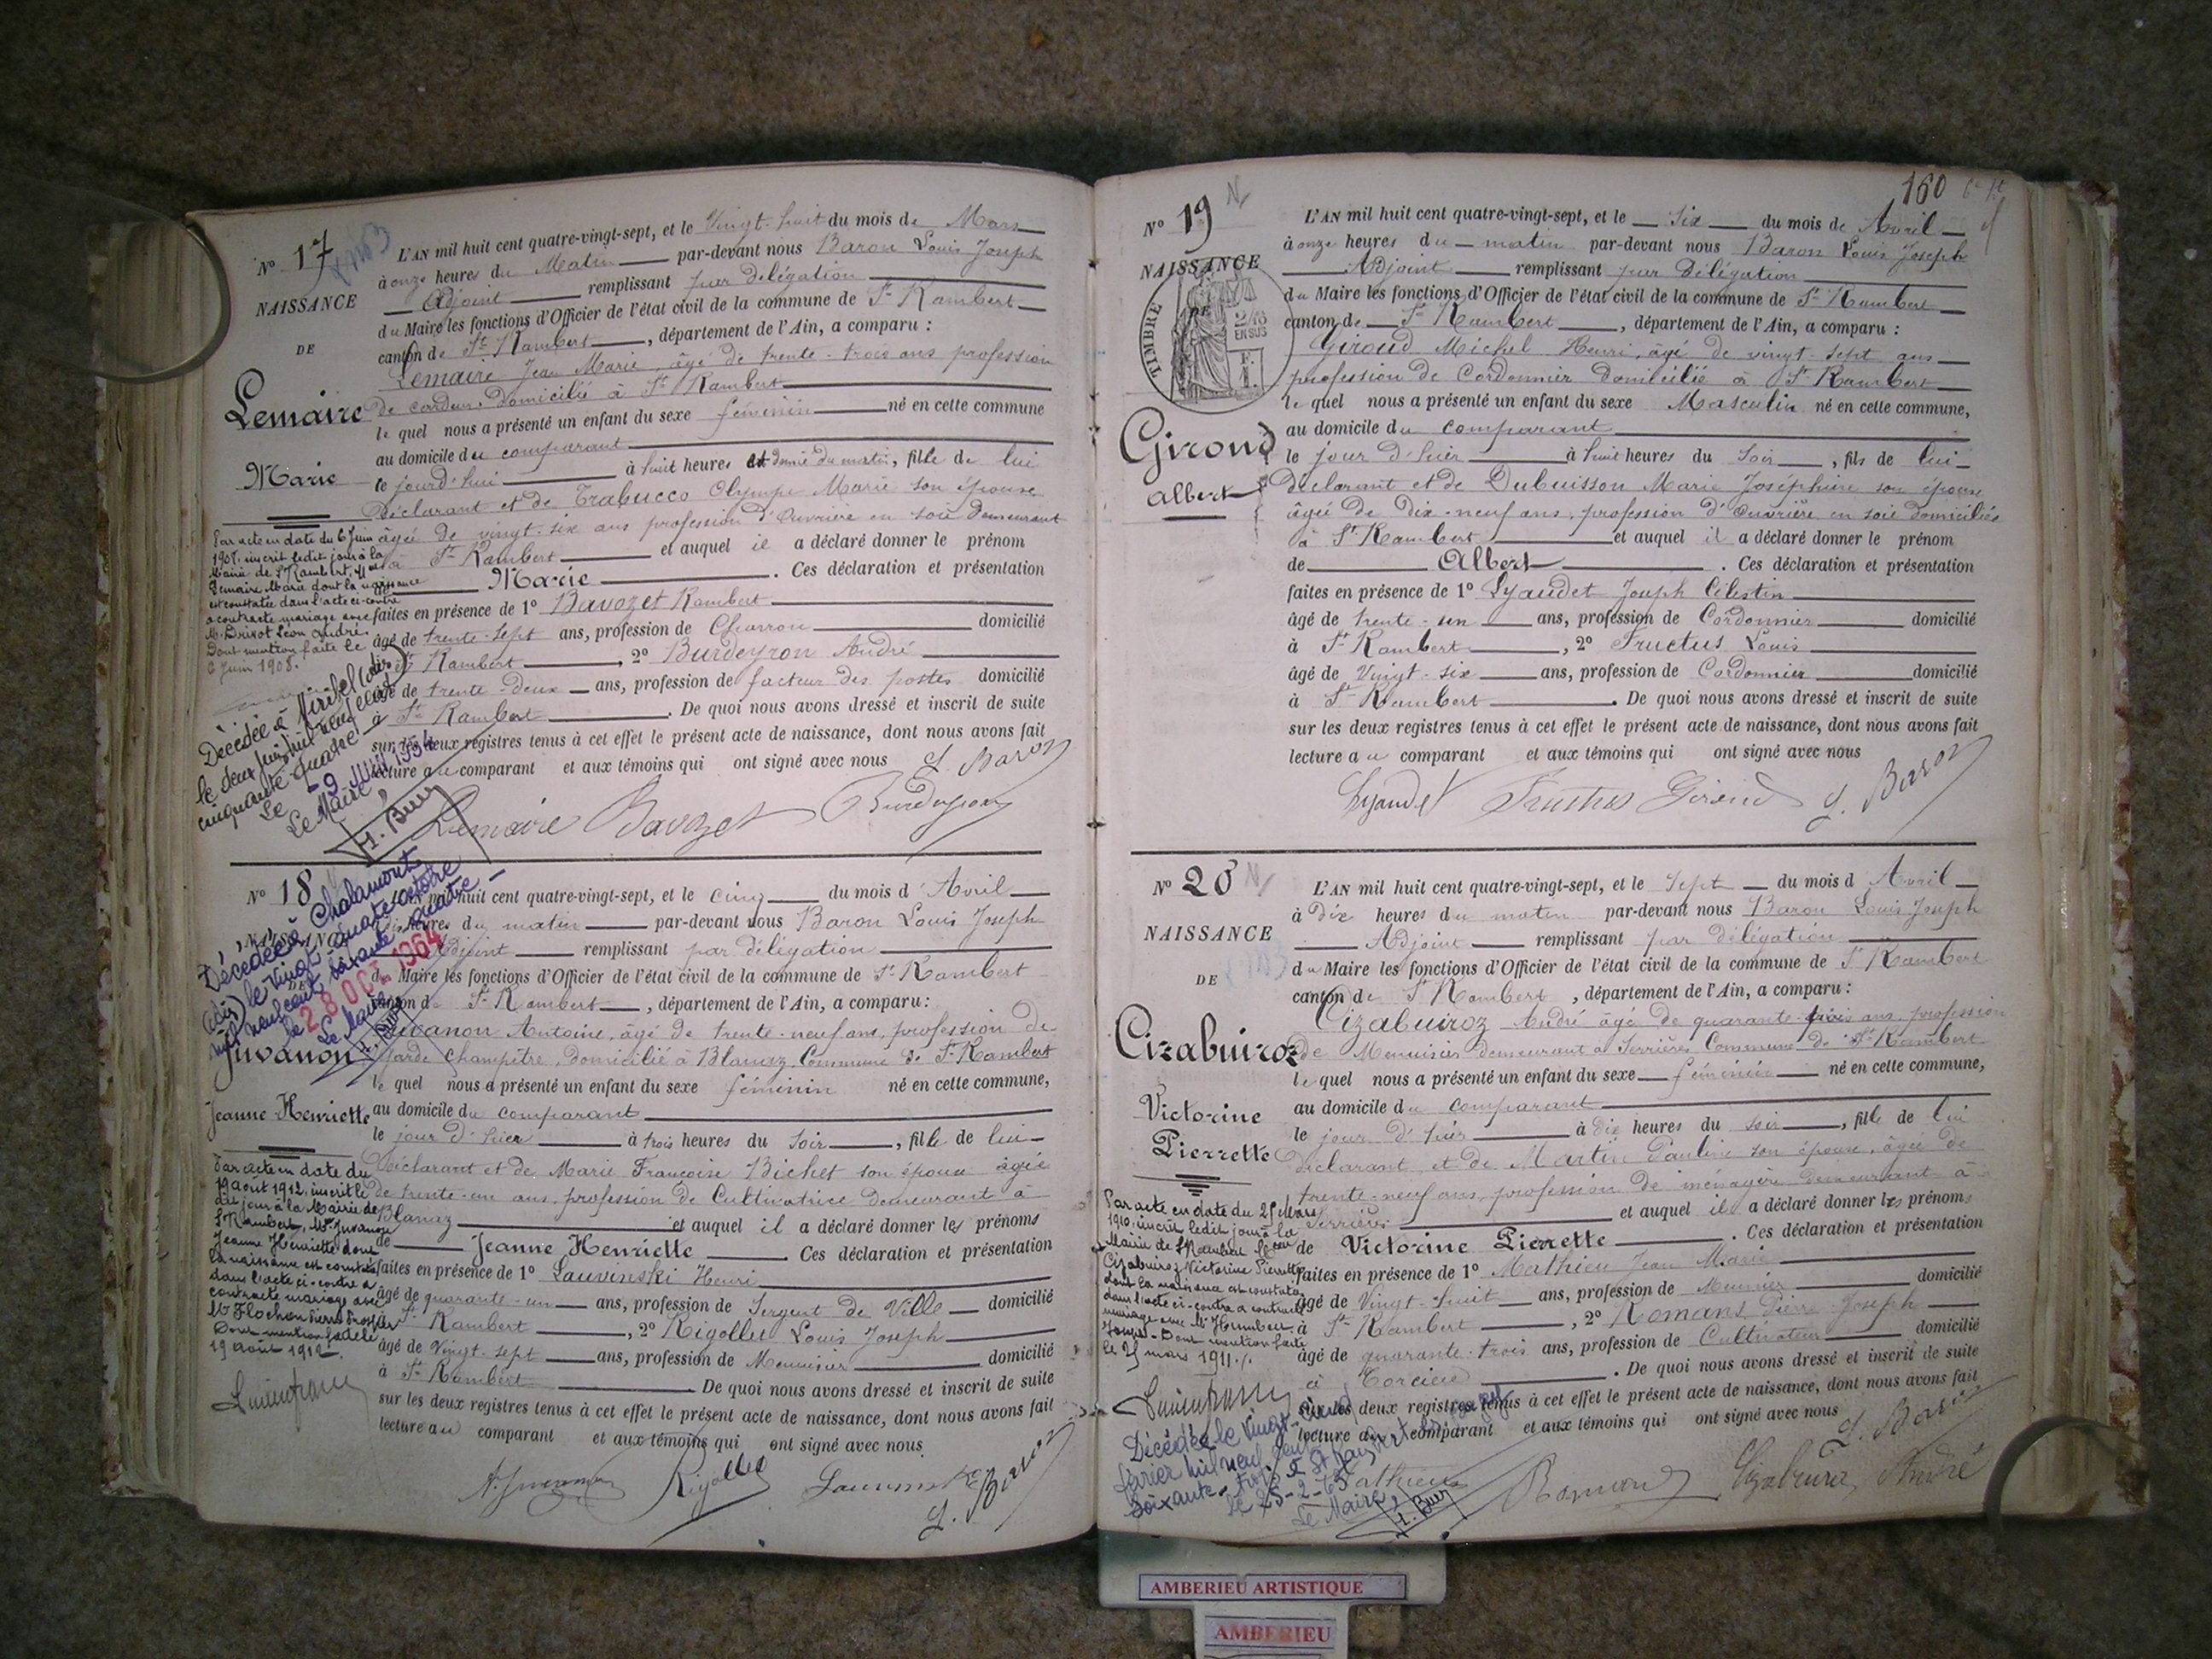 N° 17
NAISSANCE
DE
Lemaire
Marie
L'AN mil huit cent quatre-vingt-sept, et le Vingt-huit du mois de Mars
à onze heures du Matin par-devant nous Baron Louis Joseph
Adjoint remplissant par délégation
du Maire les fonctions d'Officier de l'état civil de la commune de St Rambert
canton de St Rambert, département de l'Ain, a comparu :
Lemaire Jean Marie, âgé de trente-trois ans profession
de cardeur, domicilié à St Rambert
le quel nous a présenté un enfant du sexe féminin né en cette commune
au domicile du comparant
le jourd'hui à huit heures et demie du matin, fille de lui
Déclarant et de Trabucco Olympe Marie son épouse
âgée de vingt-six ans profession d'Ouvrière en soie demeurant
à St Rambert et auquel il a déclaré donner le prénom
Marie. Ces déclaration et présentation
faites en présence de 1° Bavozet Rambert
âgé de trente-sept ans, profession de Charron domicilié
St Rambert, 2° Burdeyron André
âgé de trente-deux ans, profession de facteur des postes domicilié
à St Rambert. De quoi nous avons dressé et inscrit de suite
sur les deux registres tenus à cet effet le présent acte de naissance, dont nous avons fait
lecture au comparant et aux témoins qui ont signé avec nous L. Baron
Lemaire Bavozet Burdeyron
Par acte en date du 6 Juin
1908, inscrit ledit jour à la
Mairie de St Rambert, Melle
Lemaire Marie dont la naissance
est constatée dans l'acte ci-contre
a contracté mariage avec
M. Léon André.
Dont mention faite le
6 Juin 1908.
Décédée à Miribel (Ain)
le deux Juin mil neuf cent
cinquante-quatre
Le 9 1954
Le Maire,
H. Buy
N° 18
NAISSANCE
DE
Juvanon
Jeanne Henriette
L'AN mil huit cent quatre-vingt-sept, et le cinq du mois d'Avril
heures du matin par-devant nous Baron Louis Joseph
Adjoint remplissant par délégation
du Maire les fonctions d'Officier de l'état civil de la commune de St Rambert
canton de St Rambert, département de l'Ain, a comparu :
Juvanon Antoine, âgé de trente-neuf ans, profession de
garde champêtre, domicilié à Blanaz, Commune de St Rambert
le quel nous a présenté un enfant du sexe féminin né en cette commune,
au domicile du comparant
le jour d'hier à trois heures du soir, fille de lui
Déclarant et de Marie Françoise Bichet son épouse âgée
de trente-un ans, profession de Cultivatrice demeurant à
Blanaz et auquel il a déclaré donner les prénoms
de Jeanne Henriette. Ces déclaration et présentation
faites en présence de 1° Lauvineski Henri
âgé de quarante-un ans, profession de Sergent de Ville domicilié
à St Rambert, 2° Rigollet Louis Joseph
âgé de Vingt-sept ans, profession de Menuisier domicilié
à St Rambert. De quoi nous avons dressé et inscrit de suite
sur les deux registres tenus à cet effet le présent acte de naissance, dont nous avons fait
lecture au comparant et aux témoins qui ont signé avec nous
Rigollet L. Baron
Décédée à Chalamont
(Ain) le vingt-quatre octobre
mil neuf cent soixante quatre
le 28 OCT 1964
Le Maire,
H. Buy
Par acte en date du
19 août 1912, inscrit le
dit jour à la Mairie de
St Rambert, Melle Juvanon
Jeanne Henriette dont
la naissance est constatée
dans l'acte ci-contre a
contracté mariage avec
Mr Flochon Pierre
Dont mention faite le
19 Août 1912.
160
N° 19
NAISSANCE
DE
TIMBRE
2/10
EN SUS
Giroud
Albert
L'AN mil huit cent quatre-vingt-sept, et le Six du mois de Avril
à onze heures du matin par-devant nous Baron Louis Joseph
Adjoint remplissant par Délégation
du Maire les fonctions d'Officier de l'état civil de la commune de St Rambert
canton de St Rambert, département de l'Ain, a comparu :
Giroud Michel Henri, âgé de vingt-sept ans
profession de Cordonnier domicilié à St Rambert
le quel nous a présenté un enfant du sexe Masculin né en cette commune,
au domicile du comparant
le jour d'hier à huit heures du Soir, fils de lui
Déclarant et de Dubuisson Marie Joséphine son épouse
âgée de Dix-neuf ans, profession d'ouvrière en soie domiciliés
à St Rambert et auquel il a déclaré donner le prénom
de Albert. Ces déclaration et présentation
faites en présence de 1° Lyaudet Joseph Célestin
âgé de trente-un ans, profession de Cordonnier domicilié
à St Rambert, 2° Fructus Louis
âgé de Vingt-six ans, profession de Cordonnier domicilié
à St Rambert. De quoi nous avons dressé et inscrit de suite
sur les deux registres tenus à cet effet le présent acte de naissance, dont nous avons fait
lecture au comparant et aux témoins qui ont signé avec nous
Lyaudet Fructus Giroud L. Baron
N° 20
NAISSANCE
DE
Cizabuiroz
Victorine
Pierrette
L'AN mil huit cent quatre-vingt-sept, et le Sept du mois d Avril
à Dix heures du matin par-devant nous Baron Louis Joseph
Adjoint remplissant par délégation
du Maire les fonctions d'Officier de l'état civil de la commune de St Rambert
canton de St Rambert, département de l'Ain, a comparu :
Cizabuiroz André âgé de quarante-trois ans, profession
de Menuisier demeurant à Serrières Commune de St Rambert
le quel nous a présenté un enfant du sexe féminin né en cette commune,
au domicile du comparant
le jour d'hier à dix heures du soir, fille de lui
Déclarant et de Martin Pauline son épouse, âgée de
trente-neuf ans, profession de ménagère demeurant à
Serrières et auquel il a déclaré donner les prénoms
de Victorine Pierrette. Ces déclaration et présentation
faites en présence de 1° Mathieu Jean Marie
âgé de Vingt-huit ans, profession de Meunier domicilié
à St Rambert, 2° Romans Pierre Joseph
âgé de quarante-trois ans, profession de Cultivateur domicilié
à Torcieu. De quoi nous avons dressé et inscrit de suite
sur les deux registres tenus à cet effet le présent acte de naissance, dont nous avons fait
lecture au comparant et aux témoins qui ont signé avec nous L. Baron
Mathieu Romans Cizabuiroz André
Par acte en date du 25 Mars
inscrit ledit jour à la
Mairie de St Rambert
Cizabuiroz Victorine Pierrette
dont la naissance est constatée
dans l'acte ci-contre a contracté
mariage avec Mr Humbert
Dont mention faite
le 25 mars 1911.
Décédée le vingt-cinq
février mil neuf cent
soixante-trois à St Rambert
le 25-2-63
Le Maire,
H. Buy
AMBERIEU ARTISTIQUE
AMBERIEU